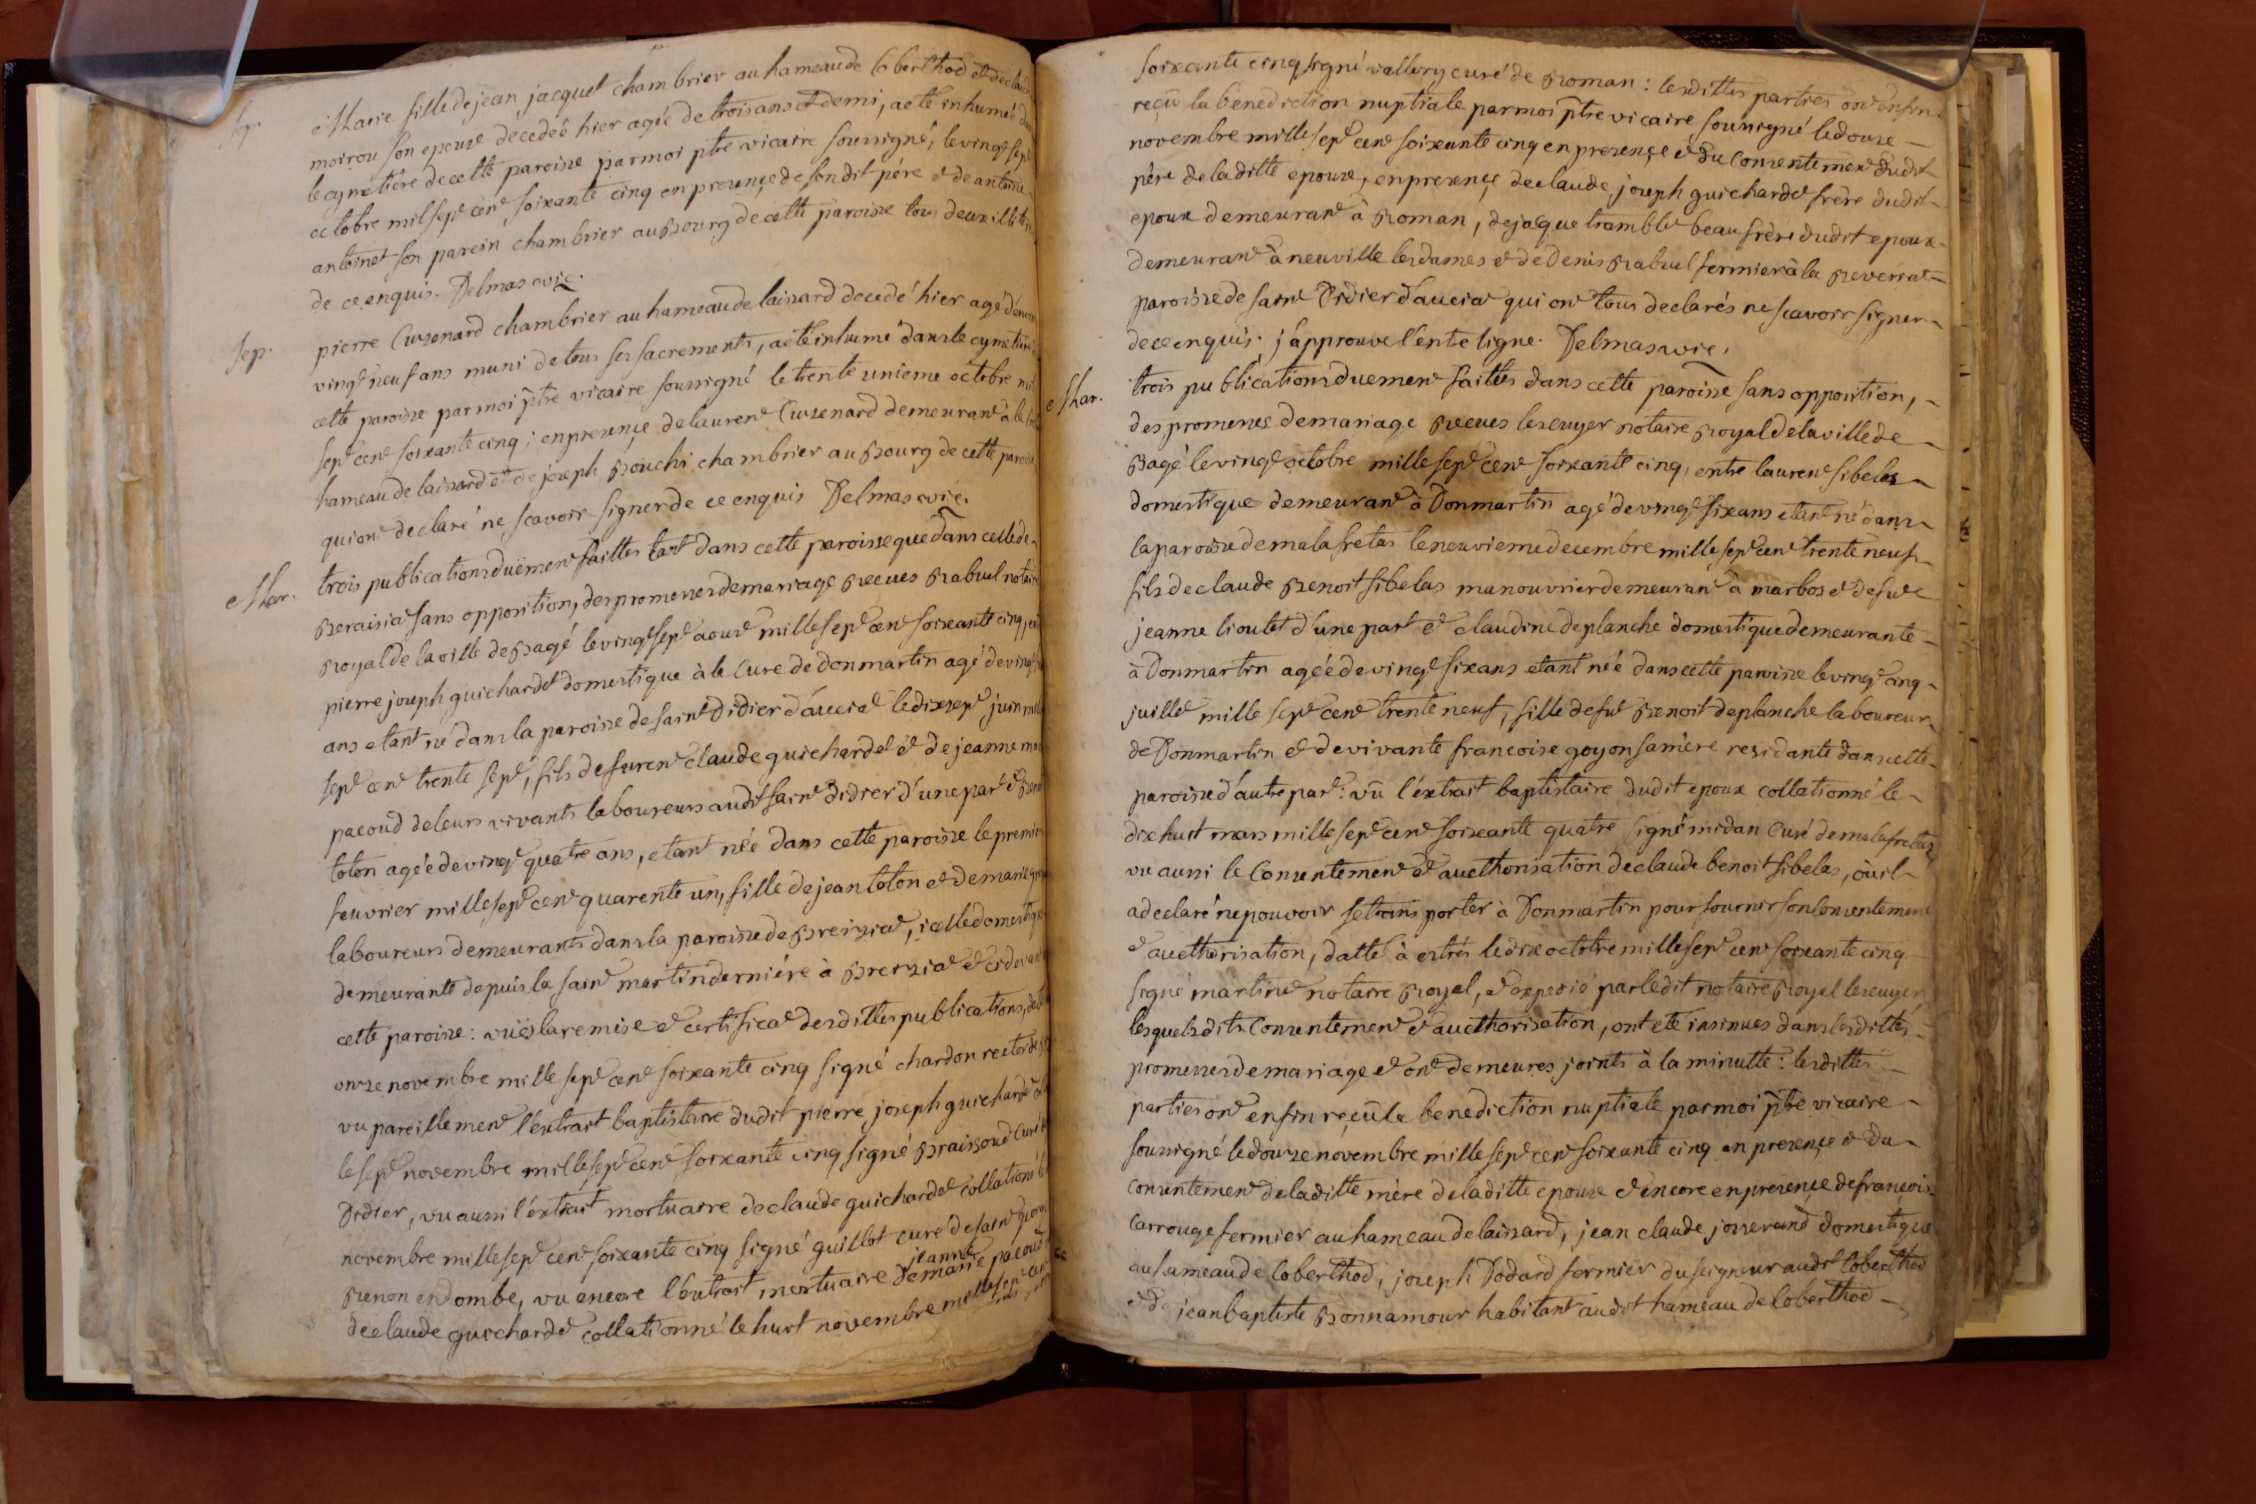 Sep.
Marie fille de jean jacquet chambrier au hameau de loberthod et de claud
moirou son epouse decedeé hier ageé de trois ans et demi, a eté inhumeé dans
le cymetiére de cette paroisse par moi ptre vicaire soussigné, le vingt sept
octobre mil sept cent soixante cinq en presençe de son dit pére et de antoine
antoinet son parein chambrier au Bourg de cette paroisse tous deux illetrés
de ce enquis. Delmas vic.
Sep.
pierre Cuzenard chambrier au hameau de laissard decedé hier agé d'environ
vingt neuf ans muni de tous ses sacrements, a eté inhumé dans le cymetiére
cette paroisse par moi ptre vicaire soussigné le trente unieme octobre mil
sept cent soixante cinq; en presençe de laurent Cuzenard demeurant à le
hameau de laissard et de joseph Bouchi chambrier au Bourg de cette paroisse
qui ont declaré ne scavoir signer de ce enquis Delmas vic.
Mar.
trois publications duëment faittes tant dans cette paroisse que dans celle de
Beraisiat sans opposition, des promesses de mariage Receues Rabuel notaire
Royal de la ville de Bagé le vingt sept aoust mille sept cent soixante cinq, entre
pierre joseph guichardet domestique à le Cure de donmartin agé de vingt
ans etant né dans la paroisse de saint Didier d'auciat le dix sept juin mille
sept cent trente sept, fils de furent claude guichardet et de jeanne marie
pacoud de leurs vivants laboureurs audit saint Didier d'une part et
toton ageé de vingt quatre ans, etant neé dans cette paroisse le premier
feuvrier mille sept cent quarente un, fille de jean toton et de marie
laboureurs demeurants dans la paroisse de Breiziat, icelle domestique
demeurante depuis la saint martin derniére à Breiziat et cidevant
cette paroisse: vuës la remise et certificat desdittes publications, datté
onze novembre mille sept cent soixante cinq signé chardon rector de
vu pareillement l'extrait baptistaire dudit pierre joseph guichardet
le sept novembre mille sept cent soixante cinq signé Braissoud Curé
Didier, vu aussi l'extrait mortuaire de claude guichardet collationé le
novembre mille sept cent soixante cinq signé guillot curé de saint
Renon en dombe, vu encore l'extrait mortuaire de jeanne marie pacoud
de claude guichardet collationné le huit novembre mille sept cent
soixante cinq signé vallery curé de Roman: lesdittes parties ont enfin
reçû la benediction nuptiale par moi ptre vicaire soussigné le douze
novembre mille sept cent soixante cinq en presençe et du Consentement dudit
pére de laditte epouse, en presençe de claude joseph guichardet frére dudit
epoux demeurant à Roman, de jacque tramblet beau frére dudit epoux
demeurant à neuville les dames et de Denis Rabuel fermier à la Reverrat
paroisse de saint Didier d'auciat qui ont tous declarés ne scavoir signer
de ce enquis. j'approuve l'entre ligne. Delmas vic.
Mar.
trois publications duement faittes dans cette paroisse sans opposition,
des promesses de mariage Receues lescuyer notaire Royal de la ville de
Bagé le vingt octobre mille sept cent soixante cinq, entre laurent sibelas
domestique demeurant à Donmartin agé de vingt six ans etant né dans
la paroisse de malafretas le neuvieme decembre mille sept cent trente neuf
fils de claude Benoit sibelas manouvrier demeurant à marbos et de fut
jeanne lioutet d'une part et claudine deplanche domestique demeurante
à Donmartin ageé de vingt six ans etant neé dans cette paroisse le vingt cinq
juillet mille sept cent trente neuf, fille de fut Benoit deplanche laboureur
de Donmartin et de vivante francoise goyon sa mére residante dans cette
paroisse d'autre part: vû l'extrait baptistaire dudit epoux collationné le
dix huit mars mille sept cent soixante quatre signé midan Curé de malafretas
vu aussi le Consentement et aucthorisation de claude benoit sibelas, où il
a declaré ne pouvoir se transporter à Donmartin pour fournir son consentement
et aucthorisation, datté à estrés le dix octobre mille sept cent soixante cinq
signé martinet notaire Royal, et expedié par ledit notaire Royal lescuyer
lesquels dits Consentement et aucthorisation, ont eté insinues dans lesdittes
promesses de mariage et ont demeures joints à la minutte: lesdittes
parties ont enfin reçû la benediction nuptiale par moi ptre vicaire
soussigné le douze novembre mille sept cent soixante cinq en presençe et du
consentement de laditte mére de laditte epouse et encore en presençe de francois
carrouge fermier au hameau de laissard, jean claude josserand domestique
au hameau de loberthod, joseph Dodard fermier du seigneur audit loberthod
et de jean baptiste Bonnamour habitant audit hameau de loberthod